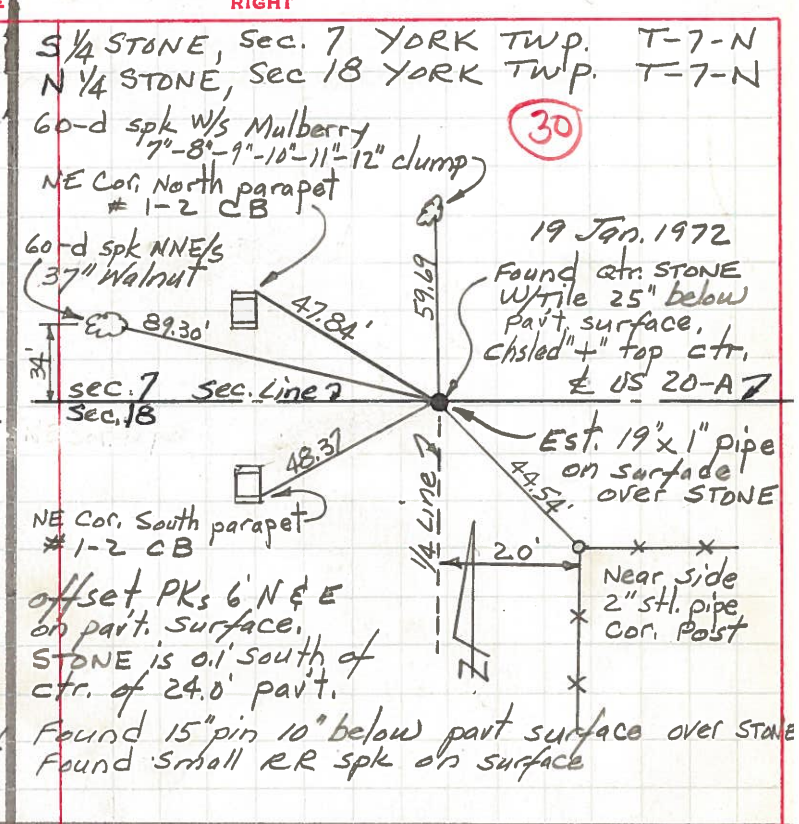 RIGHT
S 1/4 STONE, Sec. 7 YORK TWP. T-7-N
N 1/4 STONE, Sec 18 YORK TWP. T-7-N
30
60-d spk W/s Mulberry
7"-8"-9"-10"-11"-12" clump
NE Cor. North parapet
# 1-2 CB
19 Jan. 1972
60-d spk NNE/s
37" Walnut
Found Qtr. STONE
W/Tile 25" below
pav't. surface,
chsled "+" top ctr.
59.69
47.84'
89.30'
34'
℄ US 20-A
Sec. 7 Sec. Line
Sec. 18
Est. 19" x 1" pipe
on surface
over STONE
48.37
44.54'
1/4 Line
NE Cor. South parapet
# 1-2 CB
20'
Near side
2" stl. pipe
Cor. Post
offset PKs 6' N & E
on pav't. surface.
STONE is 0.1' South of
ctr. of 24.0' pav't.
N
Found 15" pin 10" below pavt surface over STONE
Found Small RR spk on surface